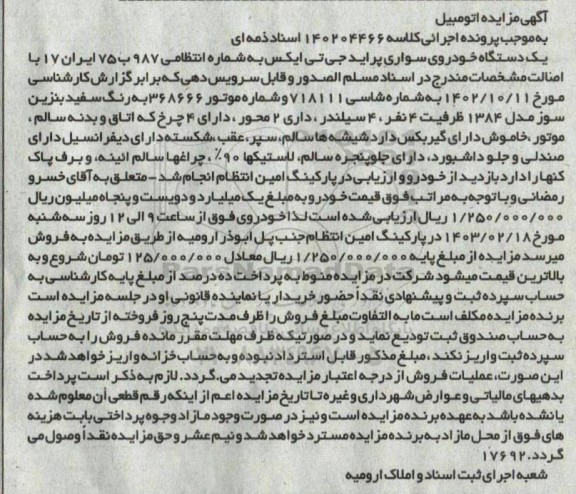 آگهی مزایده اتومبیل
به موجب پرونده اجرائی کلاسه ۱۴۰۲۰۴۴۶۶ اسناد ذمه ای
یک دستگاه خودروی سواری پراید جی تی ایکس به شماره انتظامی ۹۸۷ ب ۷۵ ایران ۱۷ با
اصالت مشخصات مندرج در اسناد مسلم الصدور و قابل سرویس دهی که برابر گزارش کارشناسی
مورخ ۱۴۰۲/۱۰/۱۱ به شماره شاسی ۷۱۸۱۱۱ و شماره موتور ۳۶۸۶۶۶ به رنگ سفید بنزین
سوز مدل ۱۳۸۴ ظرفیت ۴ نفر، ۴ سیلندر، داری ۲ محور، دارای ۴ چرخ که اتاق و بدنه سالم،
موتور، خاموش دارای گیربکس دارد شیشه ها سالم، سپر، عقب، شکسته دارای دیفرانسیل دارای
صندلی و جلو داشبورد، دارای جلوپنجره سالم، لاستیکها ۹۰٪، چراغها سالم ائینه، و برف پاک
کنها را دارد بازدید از خودرو و ارزیابی در پارکینگ امین انتظام انجام شد - متعلق به آقای خسرو
رمضانی و با توجه به مراتب فوق قیمت خودرو به مبلغ یک میلیارد و دویست و پنجاه میلیون ریال
۱/۲۵۰/۰۰۰/۰۰۰ ریال ارزیابی شده است لذا خودروی فوق از ساعت ۹ الی ۱۲ روز سه شنبه
مورخ ۱۴۰۳/۰۲/۱۸ در پارکینگ امین انتظام جنب پل ابوذر ارومیه از طریق مزایده به فروش
میرسد مزایده از مبلغ پایه ۱/۲۵۰/۰۰۰/۰۰۰ ریال معادل ۱۲۵/۰۰۰/۰۰۰ تومان شروع و به
بالاترین قیمت میشود شرکت در مزایده منوط به پرداخت ده درصد از مبلغ پایه کارشناسی به
حساب سپرده ثبت و پیشنهادی نقداً حضور خریدار یا نماینده قانونی او در جلسه مزایده است
برنده مزایده مکلف است مابه التفاوت مبلغ فروش را ظرف مدت پنج روز فروخته از تاریخ مزایده
به حساب صندوق ثبت تودیع نماید و در صورتیکه ظرف مهلت مقرر مانده فروش را به حساب
سپرده ثبت واریز نکند، مبلغ مذکور قابل استرداد نبوده و به حساب خزانه واریز خواهد شد در
این صورت، عملیات فروش از درجه اعتبار مزایده تجدید می.گردد. لازم به ذکر است پرداخت
بدهیهای مالیاتی و عوارض شهرداری و غیره تا تاریخ مزایده اعم از اینکه رقم قطعی آن معلوم شده
یا نشده باشد به عهده برنده مزایده است و نیز در صورت وجود مازاد وجوه پرداختی بابت هزینه
های فوق از محل مازاد به برنده مزایده مسترد خواهد شد و نیم عشر و حق مزایده نقداً وصول می
گردد. ۱۷۶۹۲
شعبه اجرای ثبت اسناد و املاک ارومیه